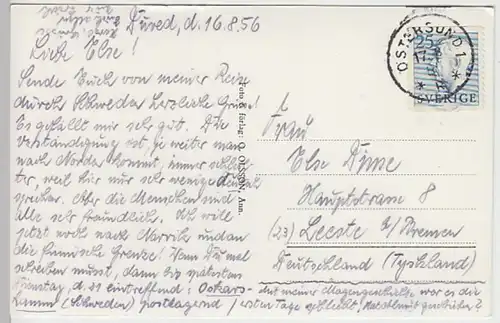 Düved, d. 16.8.56
Liebe Else!
Sende Euch von meiner Reise
durch Schweden herzliche Grüße!
Es gefällt mir sehr gut. Die
Verständigung ist, je weiter man
nach Norden kommt, immer schlech-
ter, weil hier nur sehr wenige deutsch
sprechen. Aber die Menschen sind
alle sehr freundlich. Ich will
jetzt noch nach Narvik und an
die finnische Grenze! Wenn Du mal
schreiben willst, dann bis spätestens
Dienstag, d. eintreffend: Oskars-
hamn (Schweden) postlagernd
Foto & förlag: O. OLSSON, Ånn.
ÖSTERSUND 1
25
SVERIGE
Frau
Else Düne
Hauptstrasse 8
(23) Leeste b/Bremen
Deutschland (Tyskland)
mit meiner Magengeschichte war es die
ersten Tage schlecht